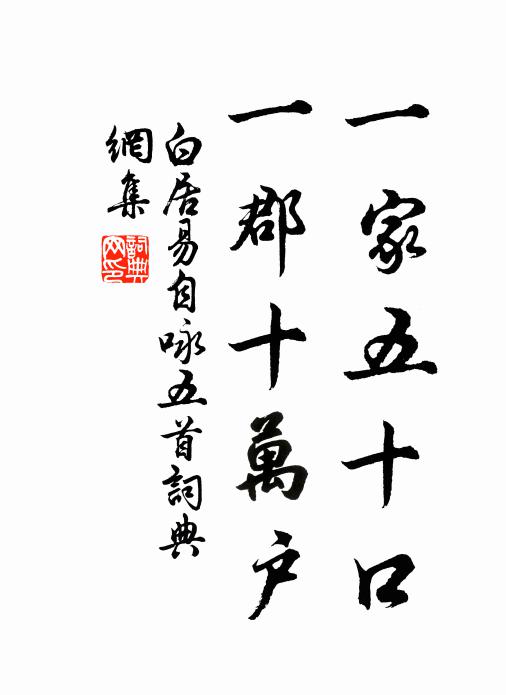 一家五十口
一郡十萬戶
白居易自咏五首詞典
網集
詞典
网印